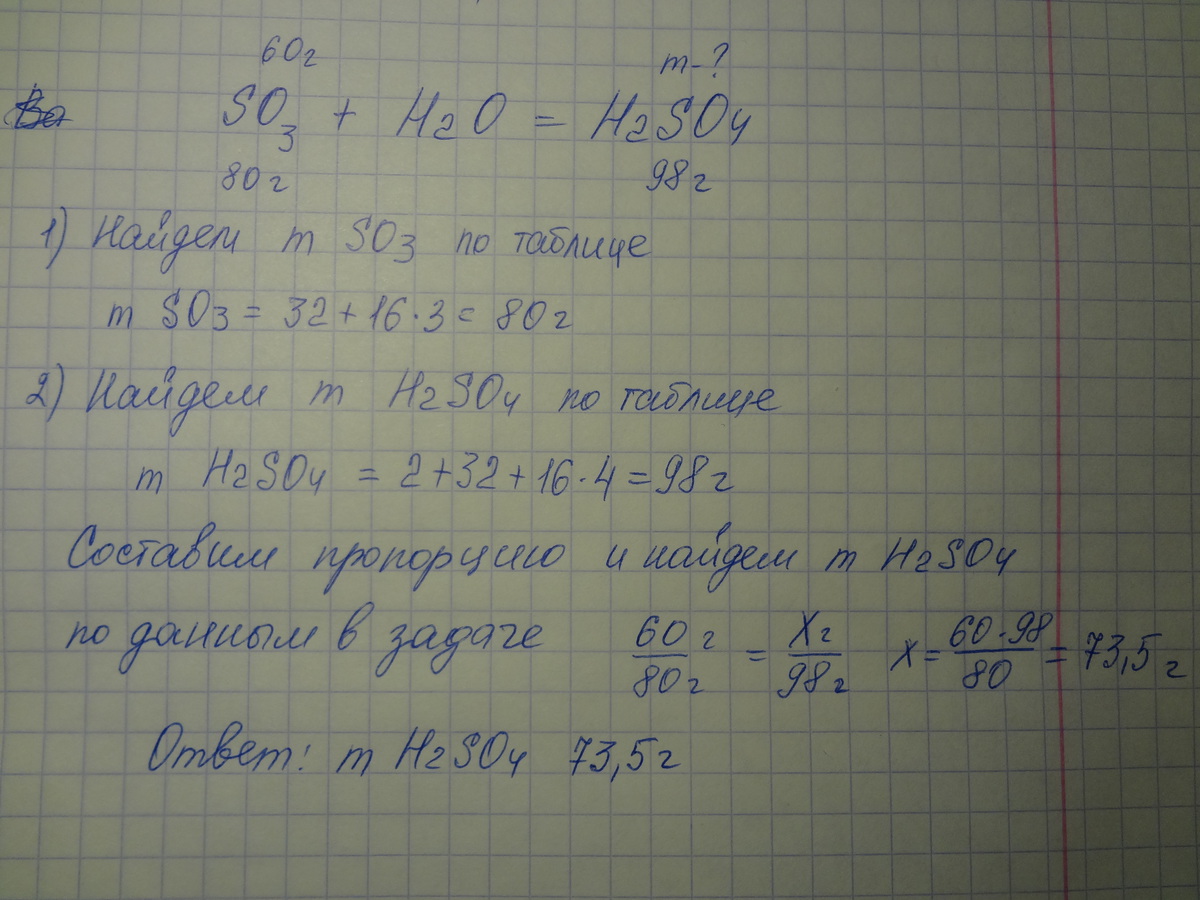 60г m-?
SO3 + H2O = H2SO4
80г 98г
1) Найдем m SO3 по таблице
m SO3 = 32+16·3= 80г
2) Найдем m H2SO4 по таблице
m H2SO4 = 2+32+16·4=98г
Составим пропорцию и найдем m H2SO4
по данным в задаче 60г/80г = Xг/98г X= 60·98/80 = 73,5г
Ответ: m H2SO4 73,5г